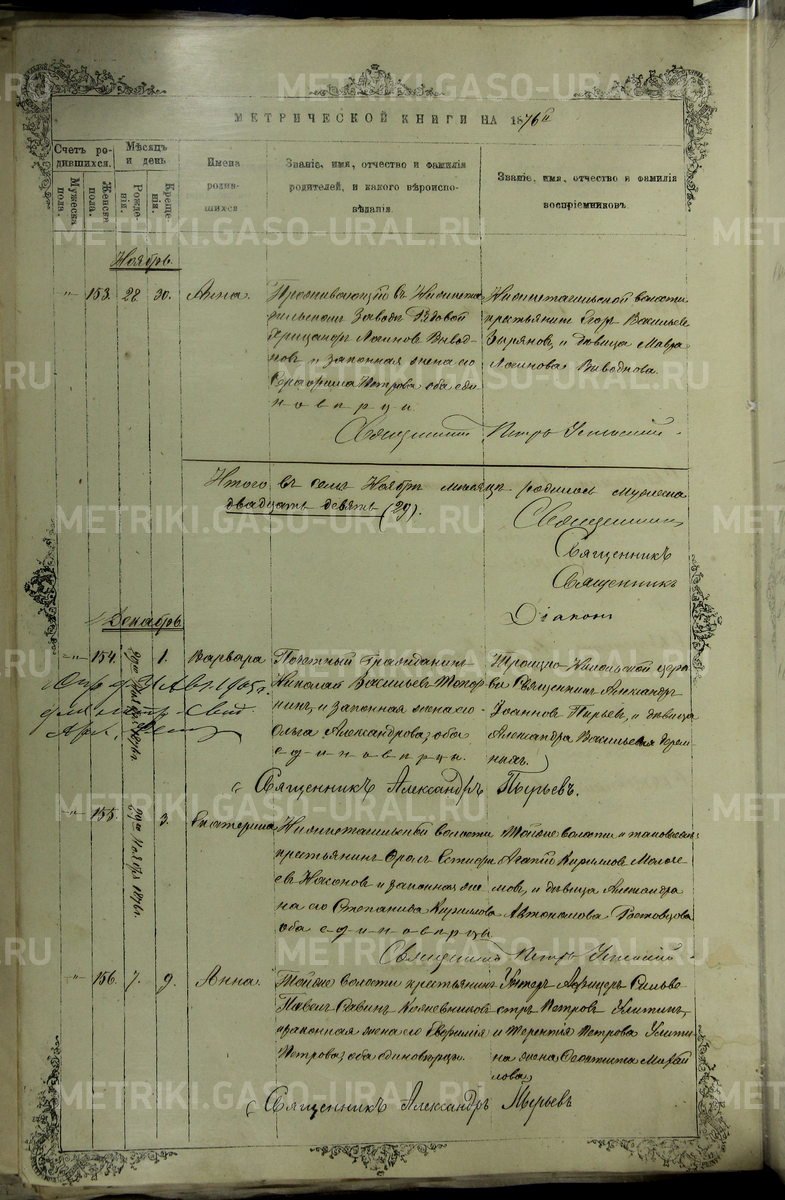 МЕТРИЧЕСКОЙ КНИГИ НА 1876й
Счетъ ро-
дившихся.
Мѣсяцъ
и день
Имена
родив-
шихся
Званіе, имя, отчество и фамилія
родителей, и какого вѣроиспо-
вѣданія.
Званіе, имя, отчество и фамилія
воспріемниковъ.
Мужеска
пола.
Женска
пола.
Рожде-
нія.
Креще-
нія.
Ноябрь.
153. 28 30. Анна.
Проживающій въ Нижнета-
гильскомъ Заводѣ Рядовой
Логиновъ Вывод-
новъ и законная жена его
Серафима Петрова оба еди
новѣрцы
Нижнетагильской волости
крестьянинъ Егоръ Васильевъ
Зыряновъ, и дѣвица Мавра
Логинова Выводнова.
Священникъ Петръ
Итого въ семъ Ноябрѣ мѣсяцѣ родилось мужеска
двадцать девять (29).
Священникъ
Священникъ
Священникъ
Діаконъ
Декабрь
154. 29го Ноября 1876г. 1. Варвара
Почетный Гражданинъ
Николай Васильевъ Топор-
нинъ, и законная жена его
Ольга Александрова оба
единовѣрцы.
Троицко-Никольской церк
ви Священникъ Александръ
Іоанновъ Пырьевъ, и дѣвица
Александра Васильевая
1905г.
Священникъ Александръ Пырьевъ.
155. 29го Ноября 1876г. 3. Екатерина
Нижнетагильской волости
крестьянинъ Фролъ Естифе
евъ и законная же
на его Степанида Кирилова
оба единовѣрцы
Тойже волости
Агапій Кириловъ
и дѣвица Александра
Автономова Ростовцова.
Священникъ Петръ
156. 7. 9. Анна.
Тойже волости крестьянинъ
Павелъ Савинъ Кожевниковъ
и законная жена его Евфимія
Петрова оба единовѣрцы.
Унтеръ Афицеръ Сильве
стръ Петровъ Улитинъ,
и Терентія Петрова Улити
на жена Феоктиста Михай
лова
Священникъ Александръ Пырьевъ
METRIKI.GASO-URAL.RU